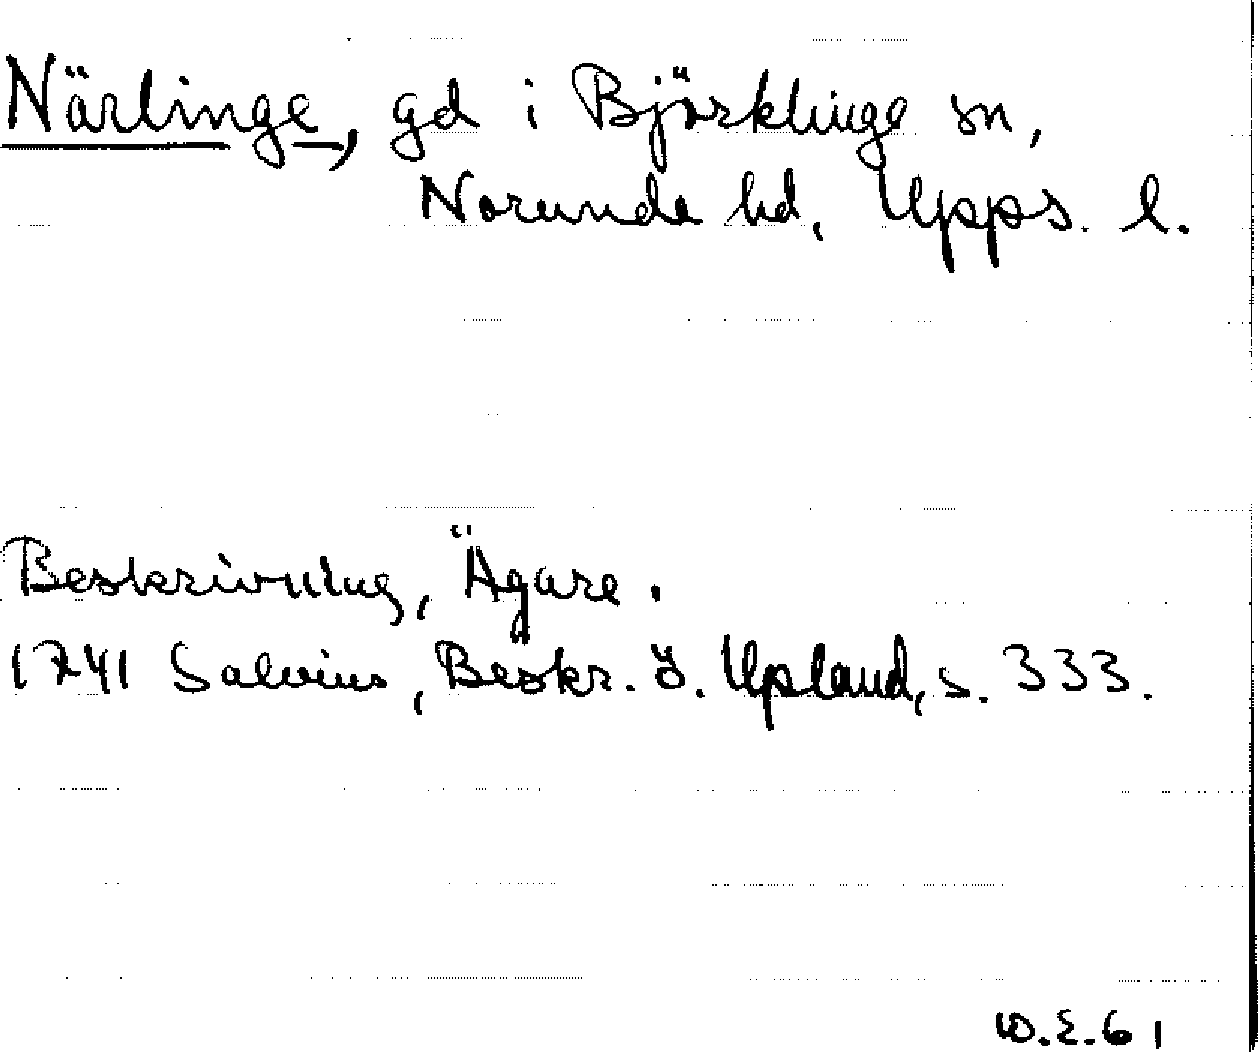 Närlinge, gd i Björklinge sn,
Norunda hd, Upps. l.
Beskrivning, Ägare.
1741 Salvius, Beskr. ö. Upland, s. 333.
W.E. 61